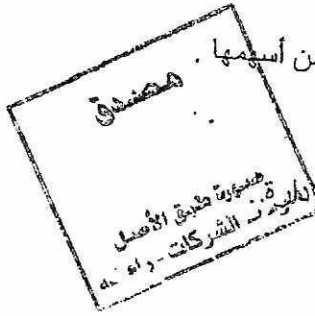 ن أسهمها .
مصدق
صورة طبق الأصل
الشركات - رام